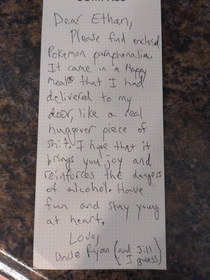 Dear Ethan,
Please find enclosed
Pokemon paraphenalia.
It came in a Happy
Meal® that I had
delivered to my
door, like a real
hungover piece of
shit. I hope that it
brings you joy and
reinforces the dangers
of alcohol. Have
fun and stay young
at heart,
Love,
Uncle Ryan (and Jill
I guess)